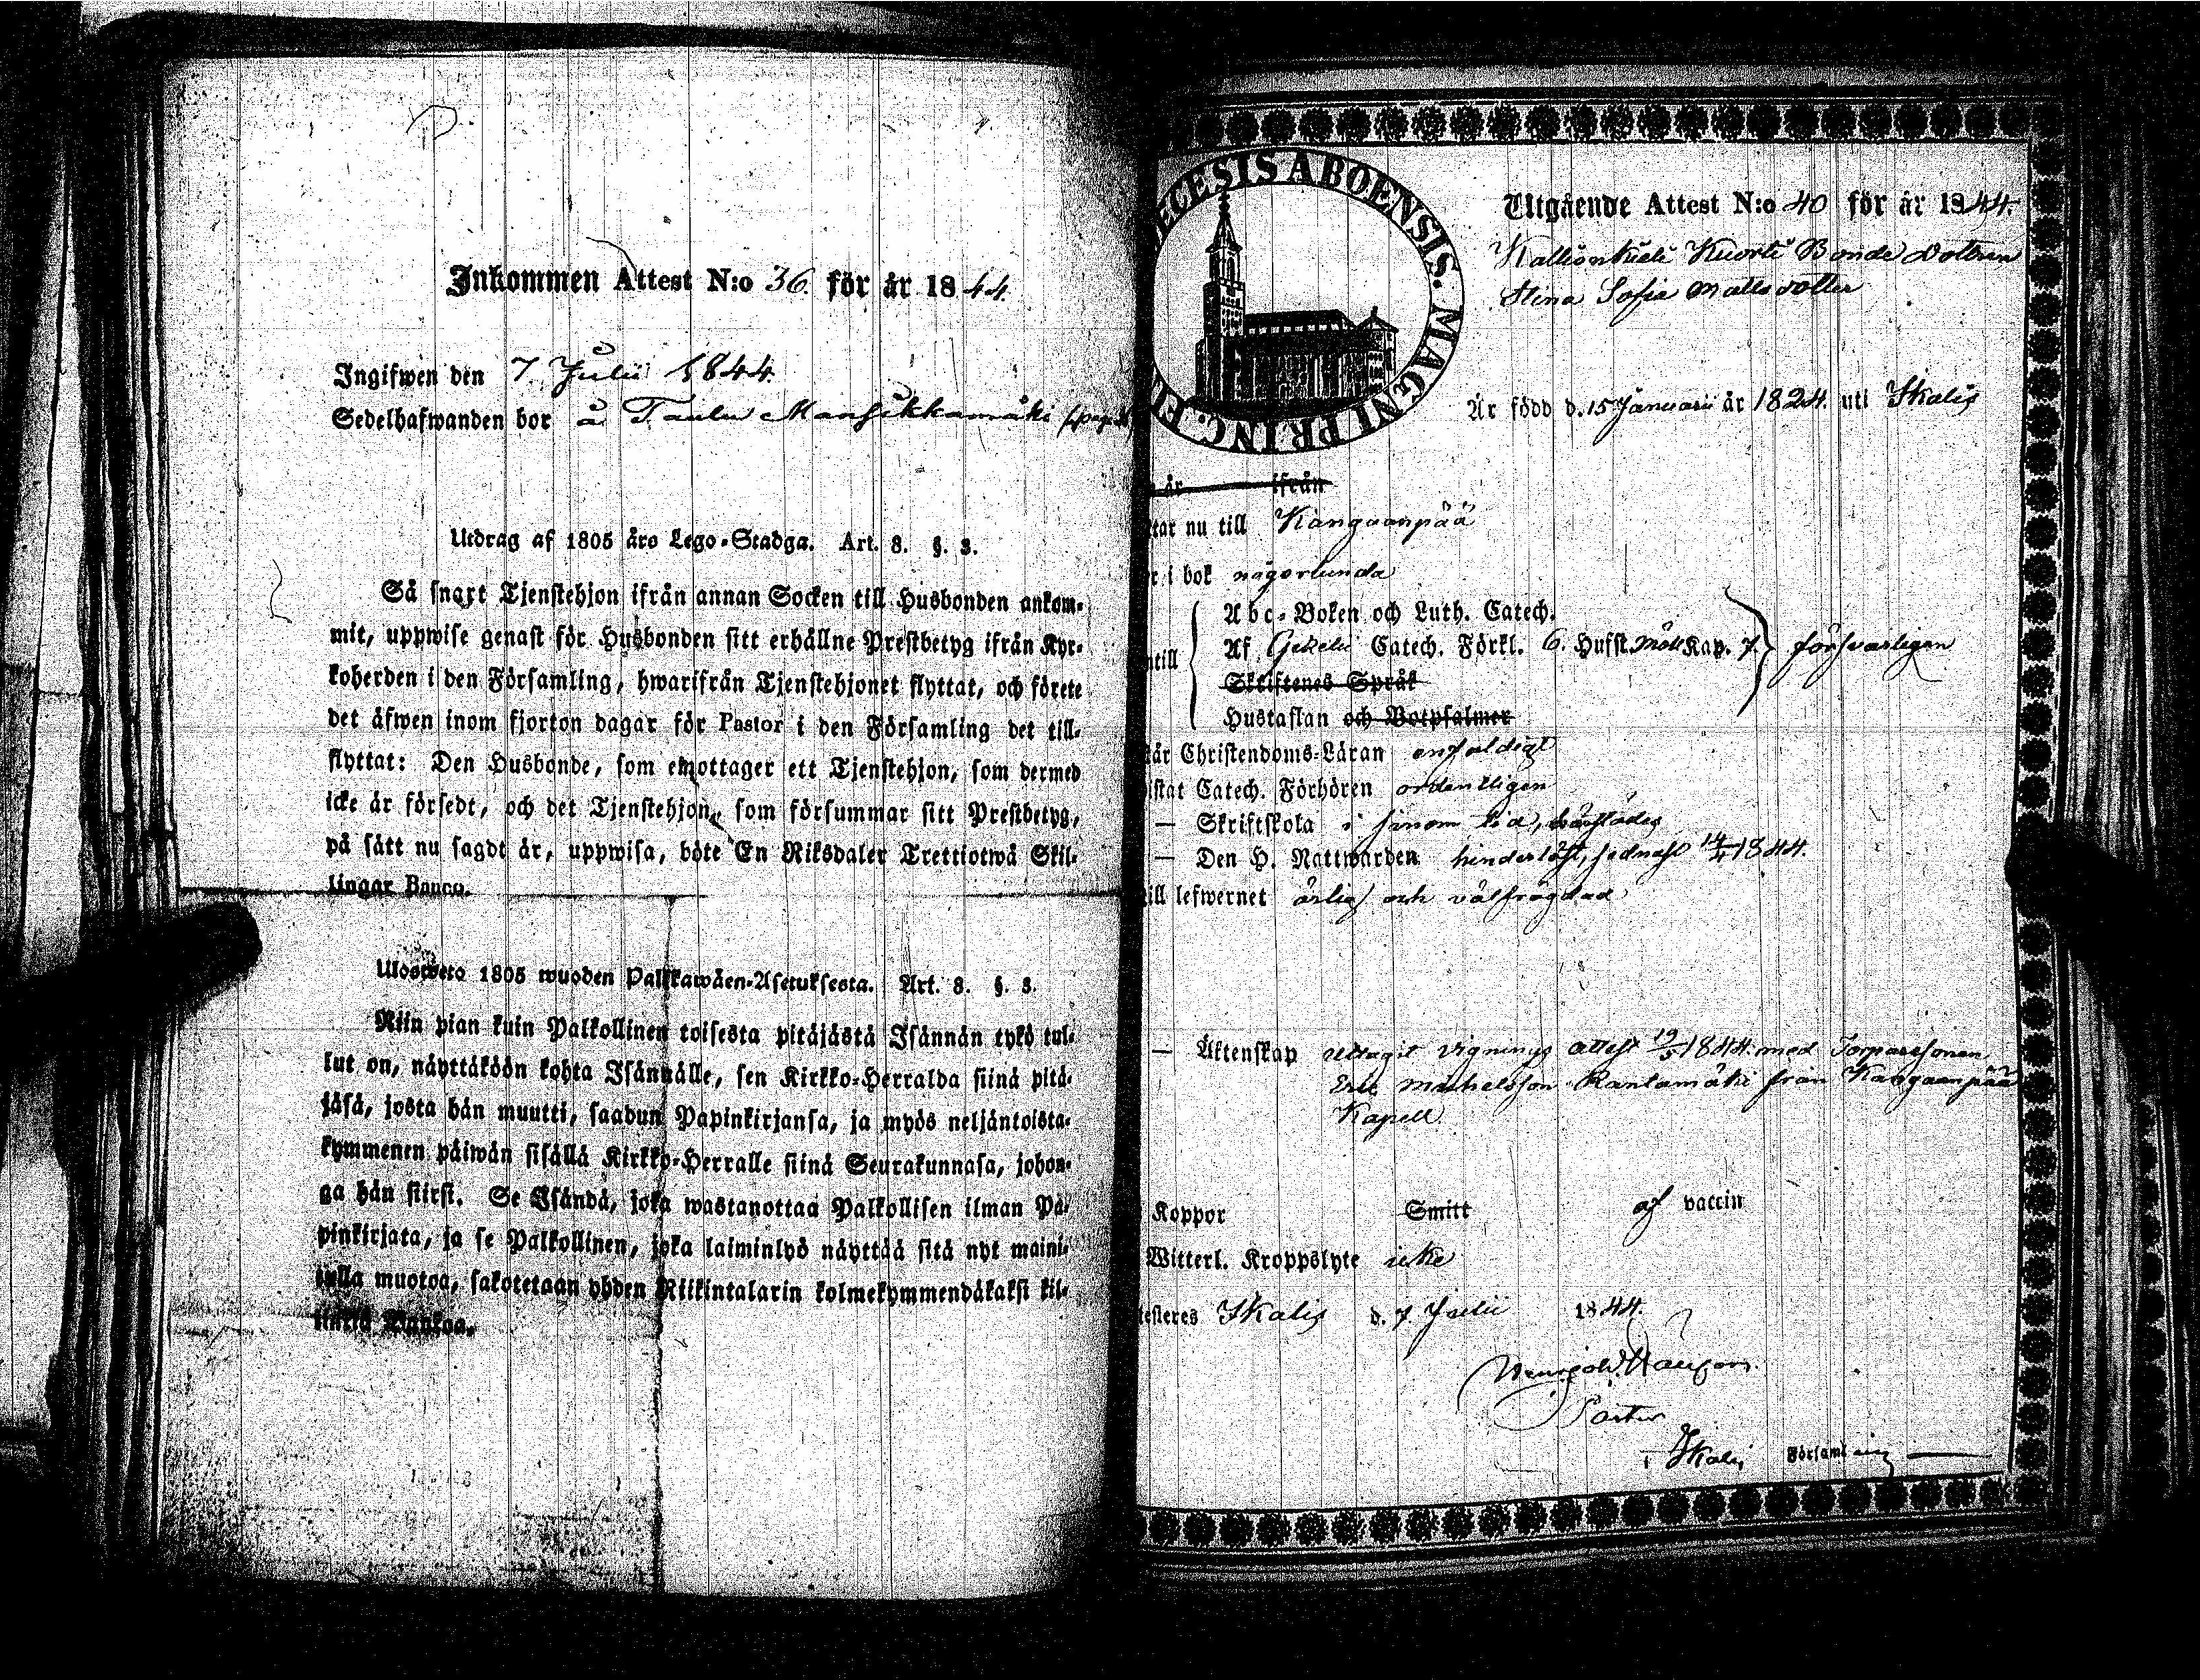 Inkommen Attest N:o 36. för år 1844.
Ingifwen den 7 Julii 1844.
Sedelhafwanden bor å Taulu Mansikkamäki
Utdrag af 1805 års Lego-Stadga. Art. 8. §. 3.
Så snart Tjenstehjon ifrån annan Socken till Husbonden ankom-
mit, uppwise genast för Husbonden sitt erhållne Prestbetyg ifrån Kyr-
koherden i den Församling, hwarifrån Tjenstehjonet flyttat, och förete
det äfwen inom fjorton dagar för Pastor i den Församling det till-
flyttat: Den Husbonde, som emottager ett Tjenstehjon, som dermed
icke är försedt, och det Tjenstehjon, som försummar sitt Prestbetyg,
på sätt nu sagdt är, uppwisa, böte En Riksdaler Trettiotwå Skil-
lingar Banco.
Ulosweto 1805 wuoden Palkkawäen-Asetuksesta. Art. 8. §. 3.
Niin pian kuin Palkollinen toisesta pitäjästä Isännän tykö tul-
lut on, näyttäköön kohta Isännälle, sen Kirkko-Herralda siinä pitä-
jäsä, josta hän muutti, saadun Papinkirjansa, ja myös neljäntoista-
kymmenen päiwän sisällä Kirkko-Herralle siinä Seurakunnasa, johon-
ga hän siirsi. Se Isändä, joka wastanottaa Palkollisen ilman Pa-
pinkirjata, ja se Palkollinen, joka laiminlyö näyttää sitä nyt maini-
tulla muotoa, sakotetaan yhden Riikintalarin kolmekymmendäkaksi kil-
lingiä Bankoa.
ECESIS ABOENSIS. MAGNI PRINC. FI
Utgående Attest N:o 40 för år 1844.
Kallionkieli Kuorti Bonde Dottren
Stina Sofia Mattsdotter
Är född d. 15 Januarii år 1824. uti Ikalis
år ifrån
tar nu till Kangaanpää
r i bok någorlunda
Abc-Boken och Luth. Catech.
ntill Af Gezelii Catech. Förkl. 6. Hufst. Möll Kap. 7. försvarligen
Skriftenes Språk
Hustaflan och Botpsalmer
tår Christendoms-Läran enfaldigt
istat Catech. Förhören ordentligen
— Skriftskola i sinom tid, härstädes
— Den H. Nattwarden hinderlöst, sednast 14/4 1844.
till lefwernet ärlig och välfrägdad
— Äktenskap uttagit vignings attest 19/5 1844. med Torparesonen
Eric Michelsson Rantamäki från Kangaanpää
Kapell
Koppor Smitt af vaccin
Witterl. Kroppslyte icke
testeres Ikalis d. 7. Julii 1844.
Pastor
i Ikalis Församling